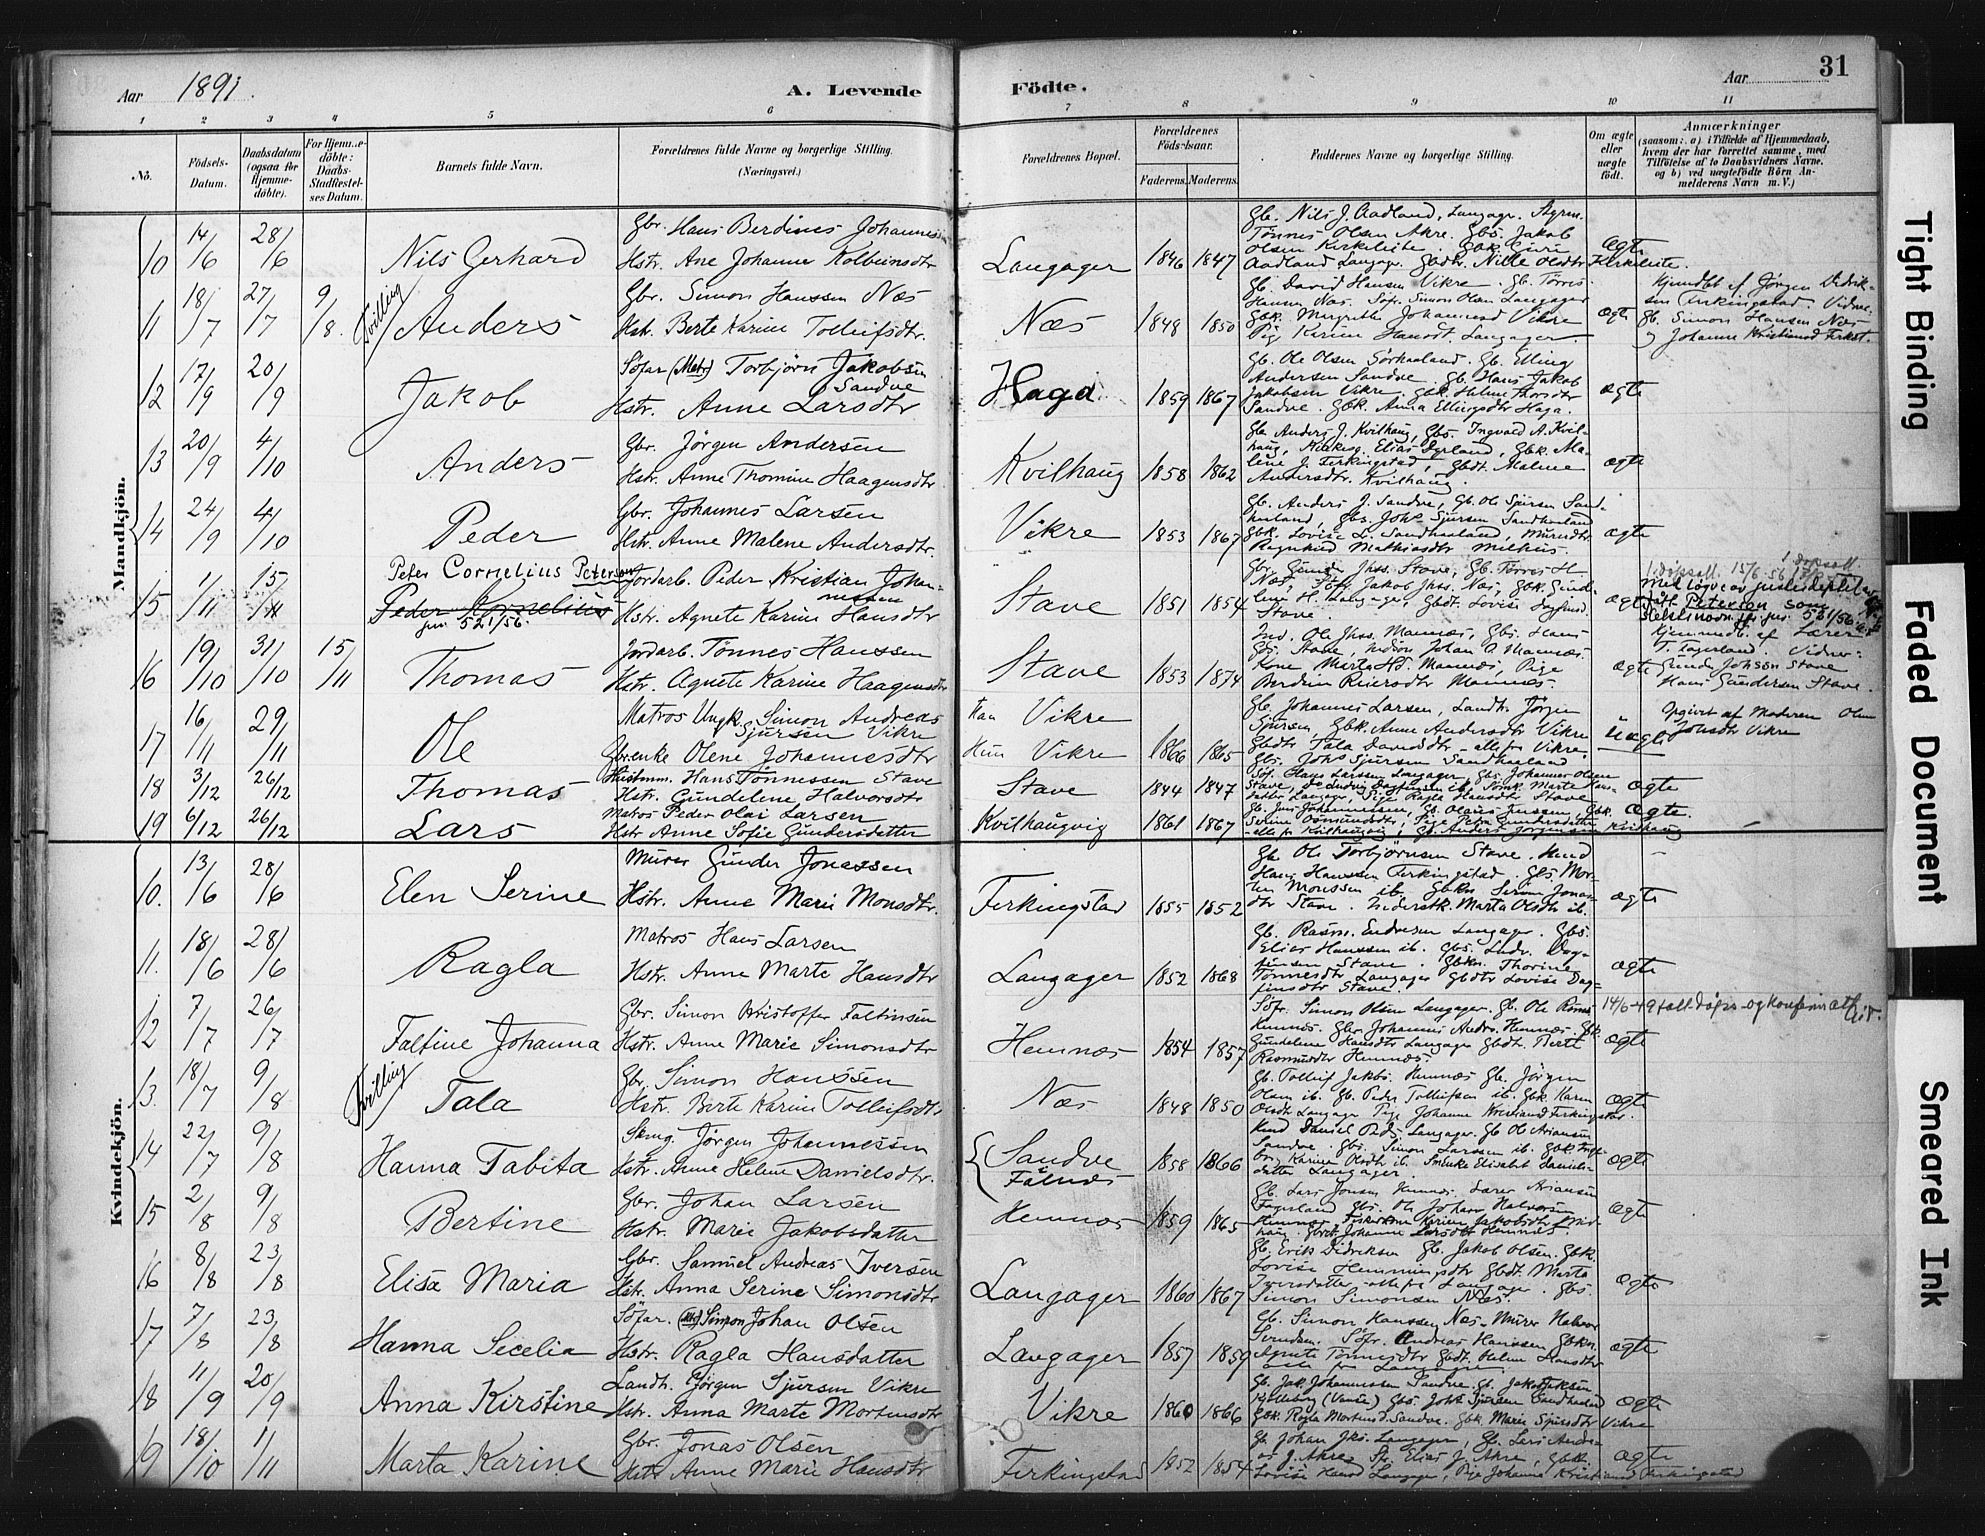 Aar 1891.
A. Levende Födte.
Aar 31
1 2 3 4 5 6 7 8 9 10 11
No.
Födsels-Datum.
Daabsdatum (ogsaa for Hjemme-döbte).
For Hjemme-döbte: Daabs-Stadfæstel-ses Datum.
Barnets fulde Navn.
Forældrenes fulde Navne og borgerlige Stilling. (Næringsvei.)
Forældrenes Bopæl.
Forældrenes Föds-lsaar.
Faderens. Moderens.
Faddernes Navne og borgerlige Stilling.
Om ægte eller uægte födt.
Anmærkninger
(saasom: a) i Tilfælde af Hjemmedaab,
hvem der har forrettet samme, med
Tilföielse af to Daabsvidners Navne.
og b) ved uægtefödte Börn An-
melderens Navn m. V.)
Mandkjön.
10 14/6 28/6 Nils Gerhard
Gbr. Hans Berdines Johannes
Hstr. Ane Johanne Kolbeinsdtr
Langager 1846 1847
Gb. Nils J. Aadland, Langagr.
Tönnes Olsen Akre. Gbs. Jakob
Olsen Kirkeleite.
Aadland Langagr. Gbdtr. Nille Olsdtr Kirkeleite.
Ægte
11 18/7 27/7 9/8. Tvilling Anders
Gbr. Simon Hanssen Næs
Hst. Berte Karine Tolleifsdtr.
Næs 1848 1850
Gb. David Hansen Vikre. Gb. Törres
Hansen Næs. Söfr. Simon Olsen Langager
Gbk. Margrethe Johannesd Vikre
Pig Karine Hansdt. Langager.
ægte
Hjemdbt af Jörgen Didrik-
sen Ferkingstad. Vidner
Gb. Simon Hansen Næs
og Johanne Kristiansd Ferkst.
12 17/9 20/9 Jakob
Söfar (Matr) Torbjörn Jakobsen
Sandve
Hstr. Anne Larsdtr
Haga 1859 1867
Gb. Ole Olsen Sörhaaland. Gb. Elling
Andersen Sandve. Gb. Hans Jakob
Jakobsen Vikre. Gbk. Helene Thorsdtr
Sandve. Gbk. Anna Ellingsdtr Haga.
ægte
13 20/9 4/10 Anders
Gbr. Jörgen Andersen
Hstr. Anne Thomine Haagensdtr.
Kvilhaug 1858 1862
Gb. Anders J. Kvilhaug, Gbs. Ingvald A. Kvil-
haug, Elias Syrland, Gbk. Ma-
lene J. Ferkingstad, Gbdt. Malene
Andersdtr. Kvilhaug.
ægte
14 24/9 4/10 Peder
Gbr. Johannes Larsen
Hstr. Anne Malene Andersdtr.
Vikre 1853 1867
Gb. Anders J. Sandve, Gb. Ole Sjursen Sand-
haaland, Gbs. Johs Sjursen Sandhaaland
Gbk. Lovise L. Sandhaaland,
Ragnhild Mathiasdtr Milhus.
ægte
Peter Cornelius Peterson
15 1/11 15/11 Peder Kornelius
jnr. 521/56.
Jordarb. Peder Kristian Johan-
nessen
Hstr. Agnete Karine Hansdtr
Stave 1851 1854
Gbr. Gunder Jhss. Stave, Gb. Törres H
Næs, Söfr Jakob Jhss. Næs, Gbk. Gunde-
lene H. Langager, Gbdt. Lovise Dagfinsd.
Stave.
ægte
1 døpsatt. 15/6 56
Med løyve av justisdeptet
Peterson som
slektsnavn jfr. jnr. 561/56
16 19/10 31/10 15/11 Thomas
Jordarb. Tönnes Hanssen
Hstr. Agnete Karine Haagensdtr
Stave 1853 1874
Ind. Ole Jhss. Mannes, Gbs. Hans
Gbs. Stave, Johan O. Mannes.
Kone Marta Hd. Mannes, Pige
Berdine Reiersdtr Mannes.
ægte
Hjemmedb. af Lærer
T. Fagerland. Vidner:
Gunder Johssön Stave
Hans Gundersen Stave.
17 16/11 29/11 Ole
Matros Ungk. Simon Andreas
Sjursen Vikre
Gbrenke Olene Johannesdtr
Han Vikre
Hun Vikre 1866 1865
Gb. Johannes Larsen, Landh. Jörgen
Sjursen Gbk. Anne Andersdtr Vikre
Gbdtr Tala Davidsdtr – alle fra Vikre.
Gbs. Johs Sjursen Sandhaaland
Uægte
Opgivet af Moderen Olene
Johsdtr Vikre
18 3/12 26/12 Thomas
Husmm. Hans Tönnessen Stave
Hstr. Gundelene Halvorsdtr
Stave 1844 1847
Söf. Hans Larssen Langager, Gbs. Johannes Olsen
Stave, Ludvig Dagfinsen ib. Marte Hans-
datter Langager, Pige Ragla Hansdtr Stave
ægte
19 6/12 26/12 Lars
Matros Peder Olai Larsen
Hstr Anne Sofie Gundersdatter
Kvilhaugvig 1861 1867
Gb. Jens Johannessen, Gb. Olaus Jenssen Gbk.
Serine Osmundsdtr, Pige Petra Gundersdatter
– alle fr Kvilhaugvig, Gb. Anders Jörgensen Kvilhaug
Ægte.
Kvindekjön.
10. 13/6 28/6 Elen Serine
Murer Gunder Jonassen
Hstr. Anne Marie Monsdtr.
Ferkingstad 1855 1852
Gb. Ole Torbjörnsen Stave.
Hans Hanssen Ferkingstad. Gbs. Mor-
ten Monssen ib. Gbkn Serine Jonas-
dtr Stave. Marta Olsdtr ib.
ægte
11. 18/6 28/6 Ragla
Matros Hans Larsen
Hstr. Anne Marte Hansdtr
Langager 1852 1868
Gb. Rasm. Endresen Langager. Gbs.
Elias Hanssen ib. Gbs. Ludv. Dag-
finsen Stave. Gbkn. Thorine
Tönnesdtr Langager Gbdtr Lovise Dag-
finsdtr Stave.
ægte
12 7/7 26/7 Faltine Johanna
Gbr. Simon Kristoffer Faltinsen
Hstr. Anne Marie Simonsdtr
Hemnæs 1854 1857
Söfr. Simon Olsen Langager. Gb. Ole Rasm.
Hemnæs. Gbr Johannes Andrs. Hemnæs. Gbk.
Gundelene Hansdtr Langager Gbdt. Berte
Rasmusdtr Hemnæs.
ægte
14/6-49 fatt døps- og konfirm.att
13. 18/7 9/8 Tvilling Tala
Gbr. Simon Hanssen
Hstr. Berte Karine Tolleifsdtr
Næs 1848 1850
Gb. Tolleif Jakbs. Hemnæs Gb. Jörgen
Olsen ib. Gb. Peder Tolleifsen ib. Gbk Karen
Olsdtr Langager Pige Johanne Kristiansd Ferkingstad.
ægte
14 22/7 9/8 Hanna Tabita
Skrug. Jörgen Johannessen
Hstr. Anne Helene Danielsdtr.
{ Sandve
Fålnæs
1858 1866
Daniel Langager. Gb Ole Ariansen
Sandve. Gbs. Simon Larssen ib. Gbk
Karine Olsdtr ib. Elisabet Daniels-
datter Langager.
ægte
15 2/8 9/8 Bertine
Gbr. Johan Larsen
Hstr. Marie Jakobsdatter
Hemnæs 1859 1865
Gb. Lars Jonsen Hemnæs. Lærer Ariansen
Fagerland Gbs. Ole Johan Halvorsen
Hemnæs, Fiskerkone Karine Jakobsdtr Kvil-
haug. Gbrk. Johanne Larsdtr Hemnæs.
Ægte
16 8/8 23/8 Elisa Maria
Gbr. Samuel Andreas Iversen
Hstr. Anna Serine Simonsdtr
Langager 1860 1867
Gb. Erik Didriksen Gb. Jakob Olsen. Gbk.
Lovise Hemmingsdtr Gbdt. Marta
Iversdatter – alle fra Langager. Gbs.
Simon Simonsen Næs.
Ægte
17 7/8 23/8 Hanna Secelia
Söfar. (Mtr) Simon Johan Olsen
Hstr. Ragla Hansdatter
Langager 1857 1859
Gb. Simon Hanssen Næs – Murer Halvor
Svendsen. Söfr. Andreas Hanssen Gbkn.
Agnete Tönnesdtr Gbdt. Helene Hansdtr
alle fra Langager.
ægte
18 11/9 20/9 Anna Kirstine
Landh. Jörgen Sjursen Vikre
Hstr. Anna Marte Mortensdtr
Vikre 1860 1866
Gb. Jak. Johannessen Sandve. Gb. Jakob Jaksen
(Vanse) Gbs. Johs Sjursen Sandhaaland
Gbk. Ragla Mortensd. Sandve. Gbk. Marie Sjursdtr Vikre
ægte
19 18/10 1/11 Marta Karine
Gbr. Jonas Olsen
Hstr Anne Marie Hansdtr.
Ferkingstad 1852 1854
Gb. Johan Jks. Langager, Gb. Lars Andre-
as J. Akre, Elias J. Akre, Gbk.
Lovise Hansd Langager, Pige Johanne Kristiansd Ferkingstad
ægte
Tight Binding
Faded Document
Smeared Ink